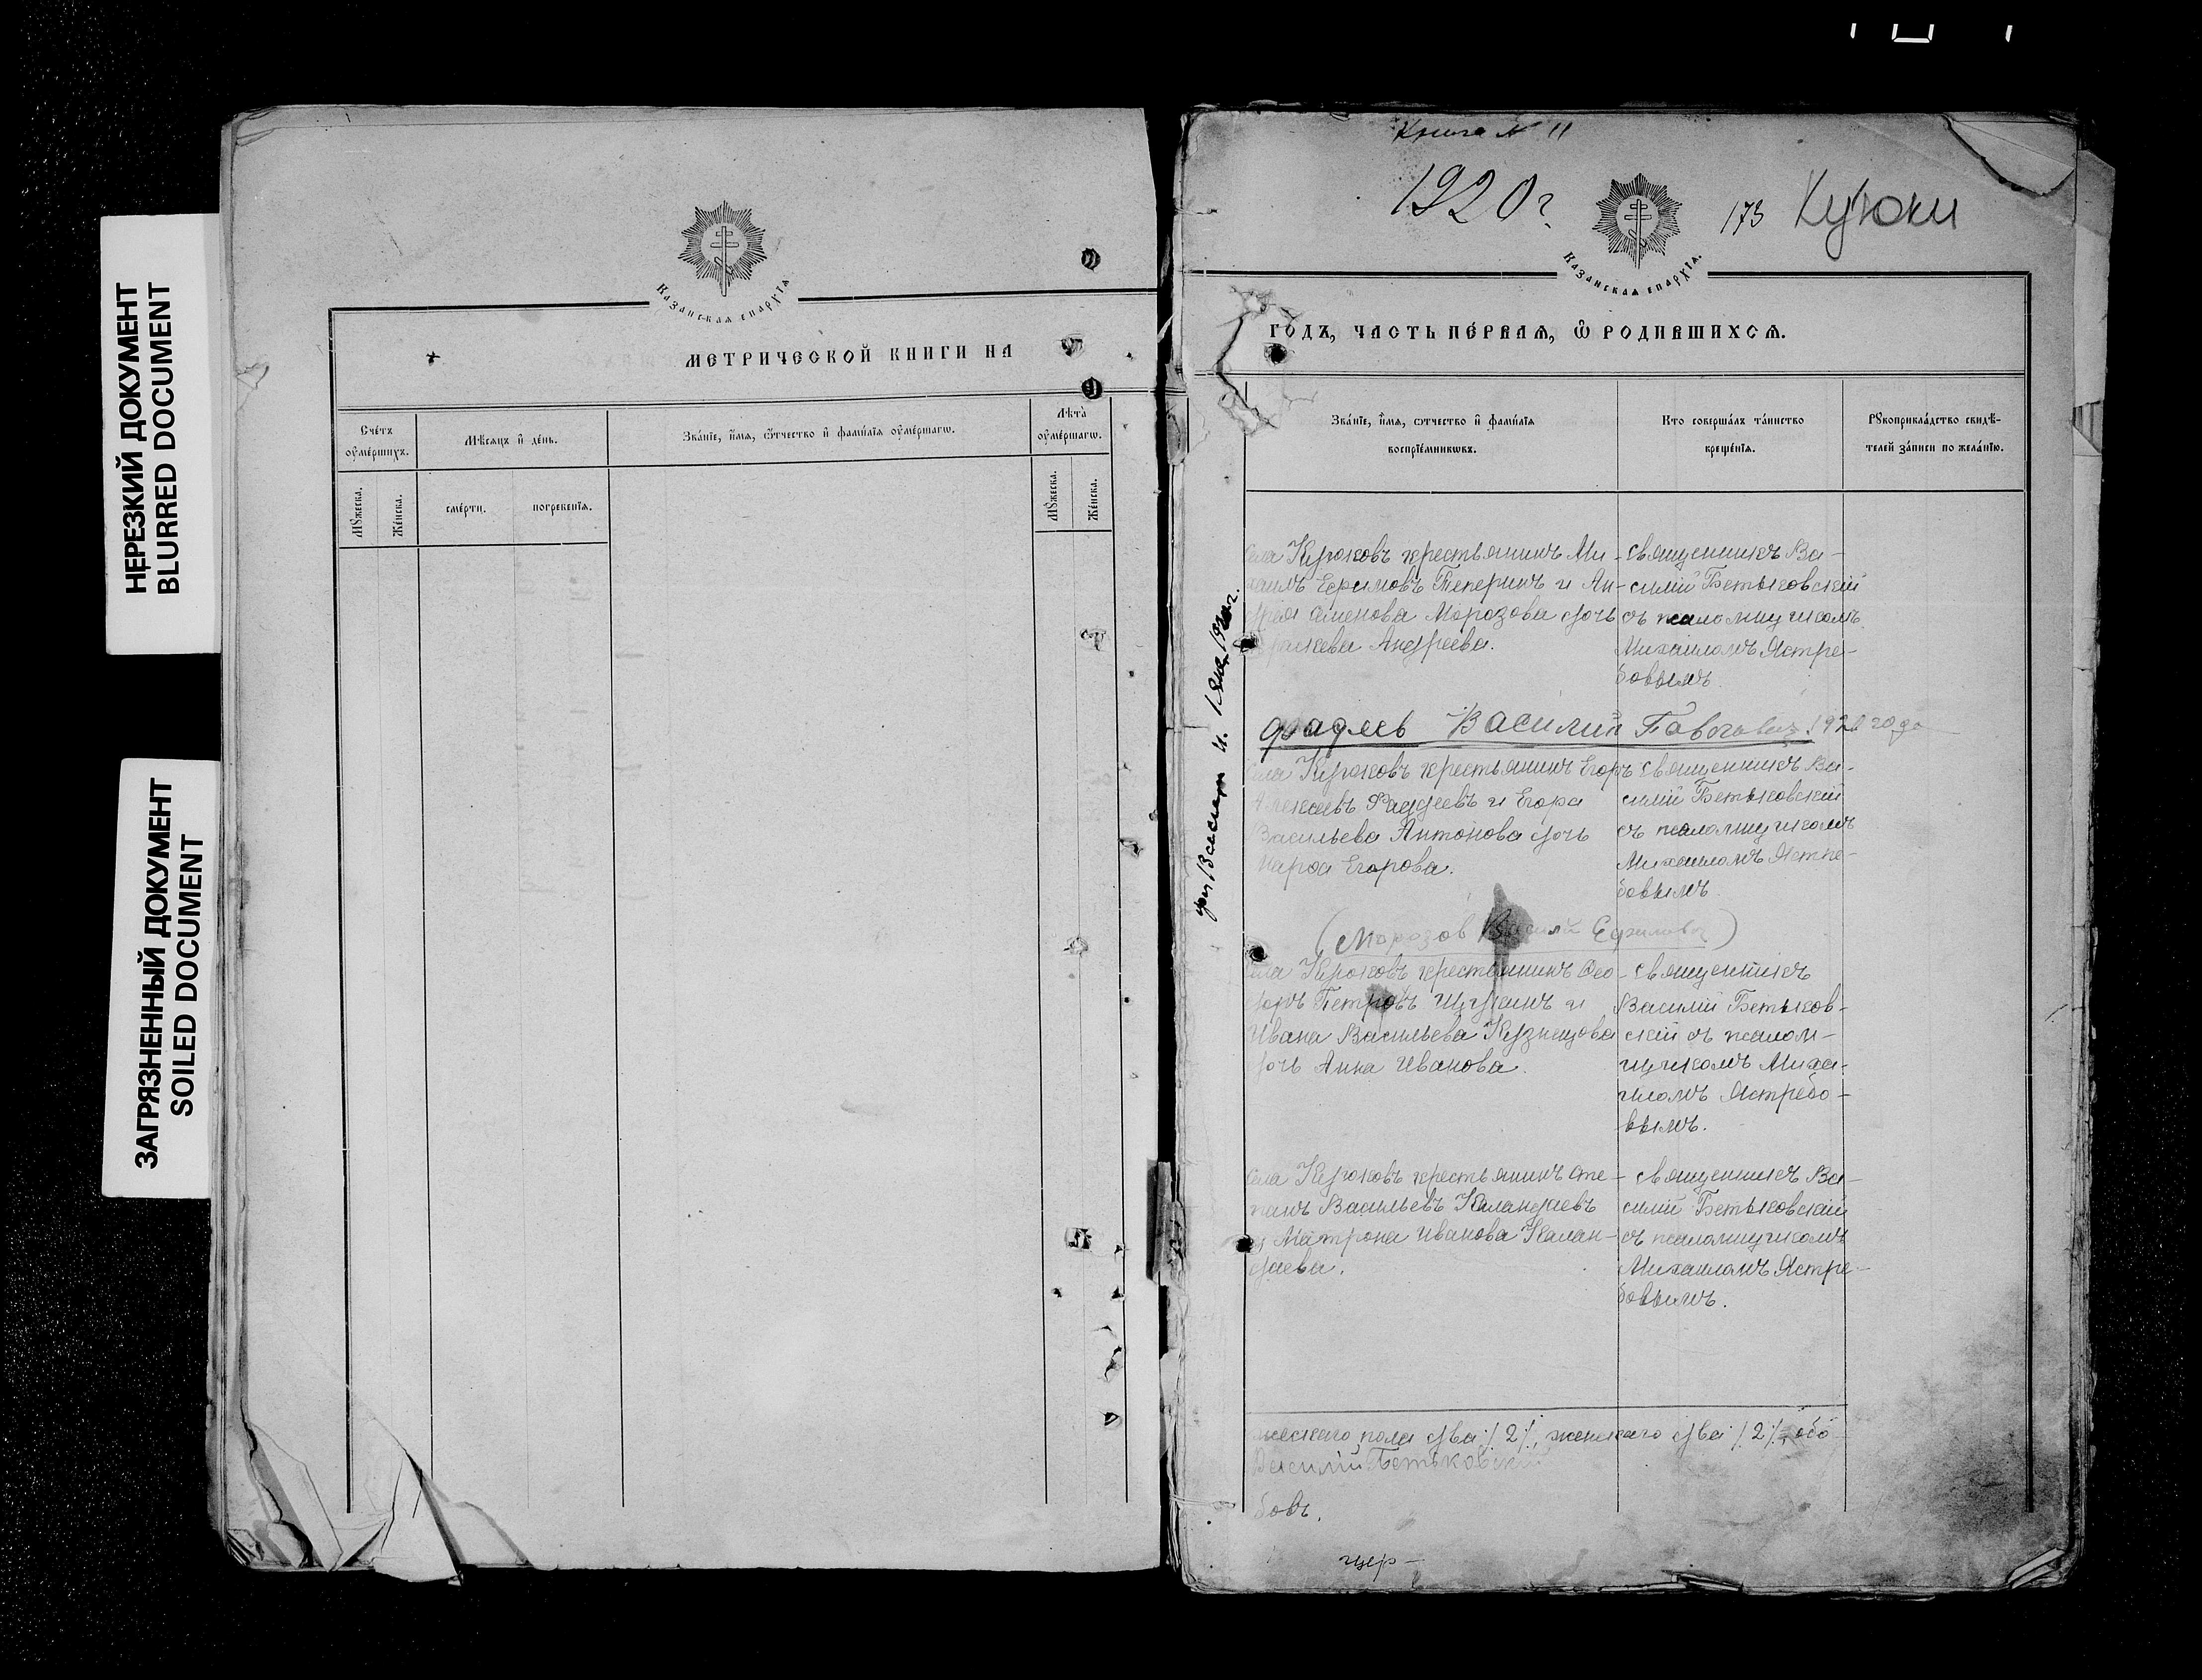 НЕРЕЗКИЙ ДОКУМЕНТ
BLURRED DOCUMENT
ЗАГРЯЗНЕННЫЙ ДОКУМЕНТ
SOILED DOCUMENT
Казанская епархїѧ
МЕТРИЧЕСКОЙ КНИГИ НА
Сче́тъ
ᲂу҆ме́ршихъ.
Мѣ́сѧцъ и҆ де́нь.
Зва́нїе, и҆́мѧ, ѻ҆́тчество и҆ фами́лїѧ ᲂу҆ме́ршагѡ.
Лѣ́та
ᲂу҆ме́ршагѡ.
Мꙋ́жеска.
Же́нска.
сме́рти.
погребе́нїѧ.
Мꙋ́жеска.
Же́нска.
Книга № 11
1920 г
173 Кутюки
Казанская епархїѧ.
ГОДЪ, ЧАСТЬ ПЕ́РВАѦ, Ѡ҆ РОДИВШИХСѦ.
Зва́нїе, и҆́мѧ, ѻ҆́тчество и҆ фами́лїѧ
воспрїе́мникѡвъ.
Кто соверша́лъ та́инство
креще́нїѧ.
Рꙋкоприкла́дство свидѣ́-
телей за́писи по жела́нїю.
крестьянинъ Ми-
хаилъ Ефимовъ Теперинъ и Ан-
дрея Семенова Морозова дочь
Андреева.
Священникъ Ва-
силій Бетьковскій
съ псаломщикомъ
Михаиломъ Ястре-
бовымъ.
Фадеев Василий Павлович 1920 года
крестьянинъ Егоръ
Алексеевъ Фаддеевъ и Егора
Васильева Антонова дочь
Егорова.
Священникъ Ва-
силій Бетьковскій
съ псаломщикомъ
Михаиломъ Ястре-
бовымъ.
(Морозов Василий Ефимович)
крестьянинъ Ѳео-
доръ Петровъ Щукинъ и
Ивана Васильева Кузнецова
дочь Анна Иванова.
Священникъ
Василій Бетьков-
скій съ псалом-
щикомъ Миха-
иломъ Ястребо-
вымъ.
крестьянинъ Сте-
панъ Васильевъ Каландаевъ
и Матрона Иванова Калан-
даева.
Священникъ Ва-
силій Бетьковскій
съ псаломщикомъ
Михаиломъ Ястре-
бовымъ.
жескаго пола два /2/, женскаго два /2/, обо-
Василій Бетьковскій
бовъ.
цер-